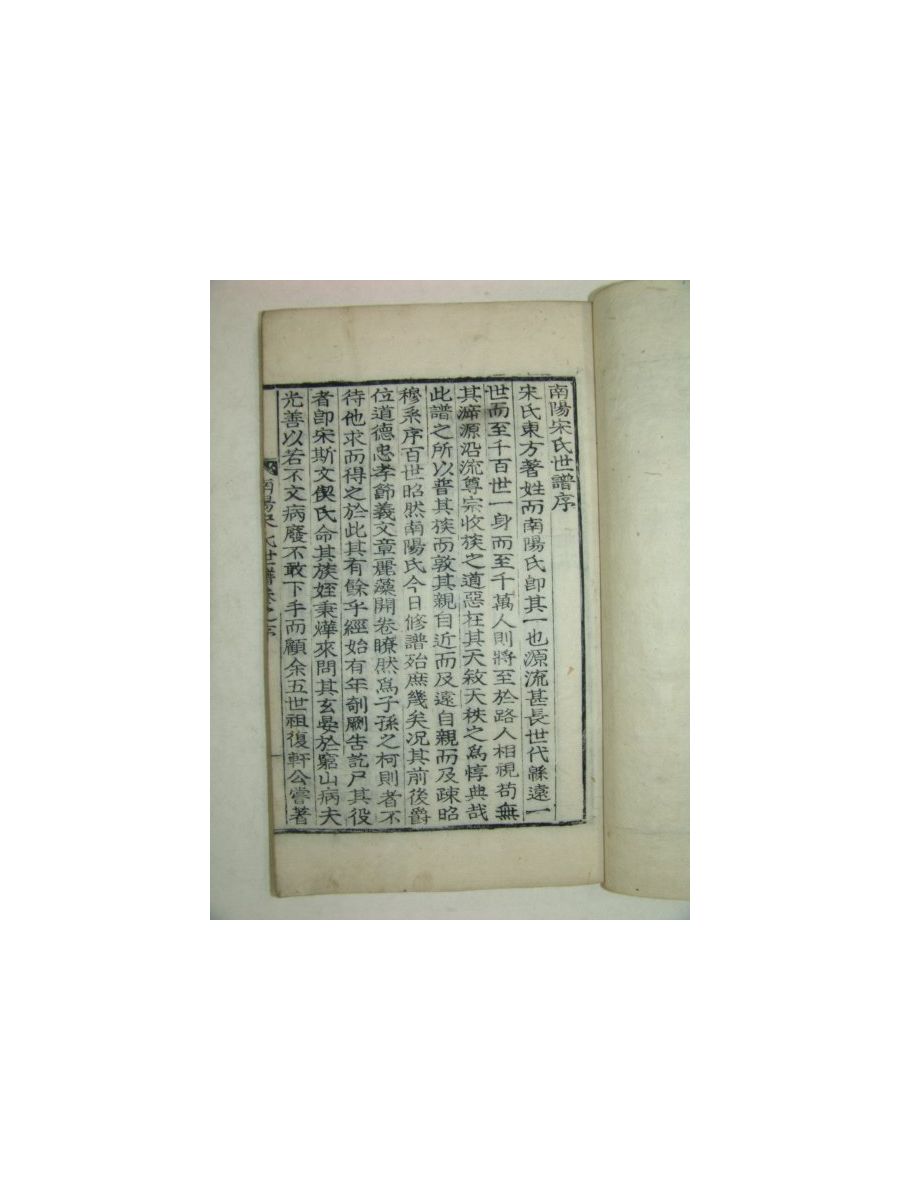 南陽宋氏世譜序
宋氏東方著姓而南陽氏卽其一也源流甚長世代緜遠一
世而至千百世一身而至千萬人則將至於路人相視苟無
其溯源沿流尊宗收族之道惡在其天敘天秩之爲惇典哉
此譜之所以普其族而敦其親自近而及遠自親而及疎昭
穆系序百世昭然南陽氏今日修譜殆庶幾矣况其前後爵
位道德忠孝節義文章麗藻開卷瞭然爲子孫之柯則者不
待他求而得之於此其有餘乎經始有年剞劂告訖尸其役
者卽宋斯文偰氏命其族姪秉燁來問其玄晏於窮山病夫
光善以若不文病廢不敢下手而顧余五世祖復軒公嘗著
南陽宋氏世譜卷之序